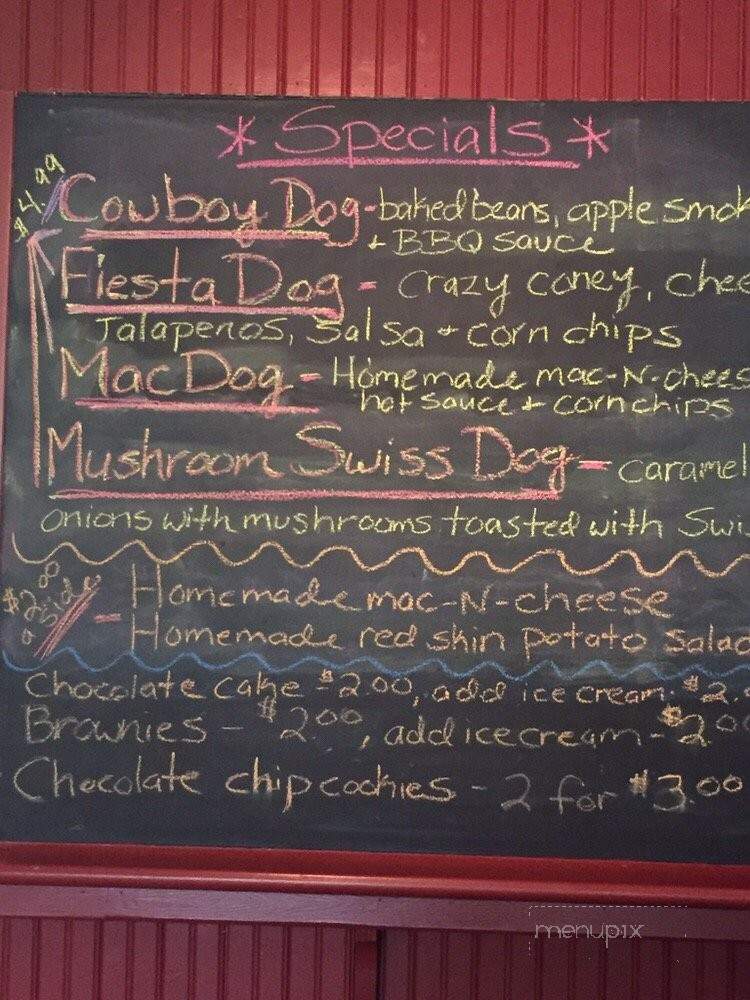 * Specials *
$4.99
Cowboy Dog - baked beans, apple smok
+ BBQ sauce
Fiesta Dog - crazy coney, chee
Jalapenos, Salsa + corn chips
Mac Dog - Homemade mac-N-chees
hot sauce + corn chips
Mushroom Swiss Dog - caramel
onions with mushrooms toasted with Swis
$2.00 a side - Homemade mac-N-cheese
Homemade red skin potato salad
Chocolate cake - $2.00, add ice cream - $2.0
Brownies - $2.00, add ice cream - $2.00
Chocolate chip cookies - 2 for $3.00
menupix